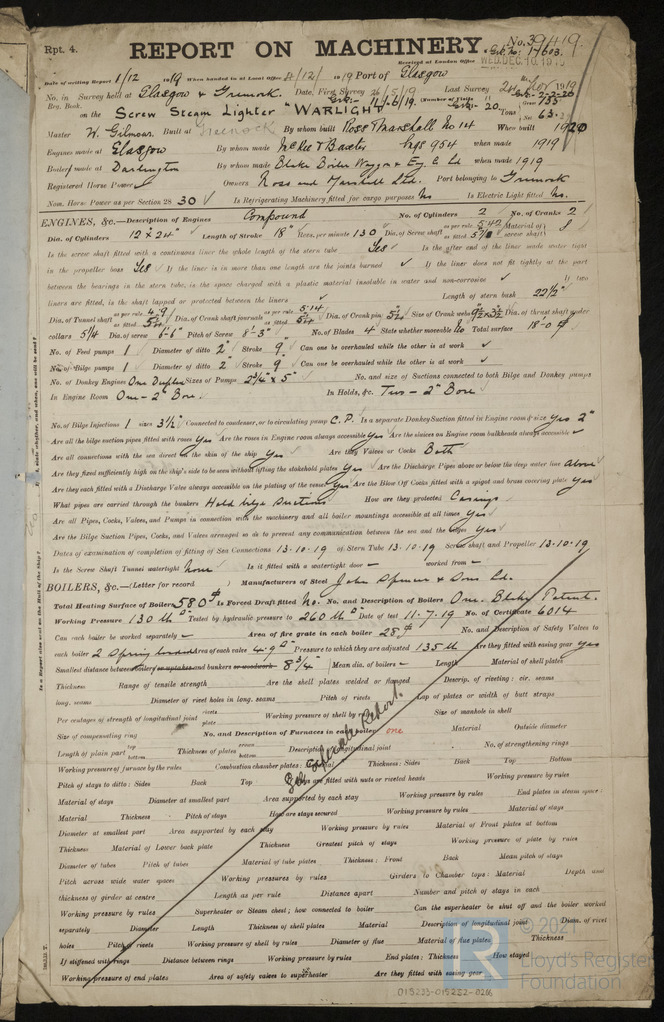 Rpt. 4.
REPORT ON MACHINERY.
No. 39419.
Grk. No. 17603.
Received at London Office WED. DEC. 10. 1919
Date of writing Report 1/12 1919 When handed in at Local Office 8/12/ 1919 Port of Glasgow
No. in Survey held at Glasgow & Greenock Date, First Survey 26/5/19 Last Survey 24 Nov 1919
Reg. Book. Grk:- 11.6.19. (Number of Visits Grk:- 20
on the Screw Steam Lighter "WARLIGHT" Tons Gross 155 Net 63.
Master W. Gilmour. Built at Greenock By whom built Ross & Marshall No 14 When built 1920
Engines made at Glasgow By whom made McKie & Baxter No 954 when made 1919
Boilers made at Darlington By whom made Blake Boiler Wagon & Eng. Co Ld when made 1919
Registered Horse Power Owners Ross and Marshall Ltd. Port belonging to Greenock
Nom. Horse Power as per Section 28 30 Is Refrigerating Machinery fitted for cargo purposes No Is Electric Light fitted No.
ENGINES, &c.—Description of Engines Compound No. of Cylinders 2 No. of Cranks 2
Dia. of Cylinders 12" & 24" Length of Stroke 18" Revs. per minute 130 Dia. of Screw shaft as per rule 5.42 as fitted Material of screw shaft S
Is the screw shaft fitted with a continuous liner the whole length of the stern tube Yes Is the after end of the liner made water tight
in the propeller boss Yes If the liner is in more than one length are the joints burned If the liner does not fit tightly at the part
between the bearings in the stern tube, is the space charged with a plastic material insoluble in water and non-corrosive If two
liners are fitted, is the shaft lapped or protected between the liners Length of stern bush 22½"
Dia. of Tunnel shaft as per rule 4.9 as fitted 5¼ Dia. of Crank shaft journals as per rule 5.14 as fitted 5¼ Dia. of Crank pin 5¼ Size of Crank webs 9½ x 3½ Dia. of thrust shaft under
collars 5¼ Dia. of screw 6'-6" Pitch of Screw 8'-3" No. of Blades 4 State whether moveable No Total surface 18.0
No. of Feed pumps 1 Diameter of ditto 2" Stroke 9" Can one be overhauled while the other is at work
No. of Bilge pumps 1 Diameter of ditto 2" Stroke 9" Can one be overhauled while the other is at work
No. of Donkey Engines One Duplex Sizes of Pumps 2¾" x 5" No. and size of Suctions connected to both Bilge and Donkey pumps
In Engine Room One - 2" Bore. In Holds, &c. Two - 2" Bore
No. of Bilge Injections 1 sizes 3½" Connected to condenser, or to circulating pump C.P. Is a separate Donkey Suction fitted in Engine room & size Yes 2"
Are all the bilge suction pipes fitted with roses Yes Are the roses in Engine room always accessible Yes Are the sluices on Engine room bulkheads always accessible
Are all connections with the sea direct on the skin of the ship Yes Are they Valves or Cocks Both
Are they fixed sufficiently high on the ship's side to be seen without lifting the stokehold plates Yes Are the Discharge Pipes above or below the deep water line above
Are they each fitted with a Discharge Valve always accessible on the plating of the vessel Yes Are the Blow Off Cocks fitted with a spigot and brass covering plate Yes
What pipes are carried through the bunkers Hold bilge suctions How are they protected Casings
Are all Pipes, Cocks, Valves, and Pumps in connection with the machinery and all boiler mountings accessible at all times Yes
Are the Bilge Suction Pipes, Cocks, and Valves arranged so as to prevent any communication between the sea and the bilges Yes
Dates of examination of completion of fitting of Sea Connections 13.10.19 of Stern Tube 13.10.19 Screw shaft and Propeller 13.10.19
Is the Screw Shaft Tunnel watertight None Is it fitted with a watertight door — worked from —
BOILERS, &c.—(Letter for record ) Manufacturers of Steel John Spencer & Sons Ld.
Total Heating Surface of Boilers 580 Is Forced Draft fitted No. No. and Description of Boilers One. Blake Patent.
Working Pressure 130 lb Tested by hydraulic pressure to 260 lb Date of test 11.7.19 No. of Certificate 6014
Can each boiler be worked separately — Area of fire grate in each boiler 28 No. and Description of Safety Valves to
each boiler 2 Spring loaded Area of each valve 4.9 Pressure to which they are adjusted 135 lb Are they fitted with easing gear Yes
Smallest distance between boilers or uptakes and bunkers or woodwork 8¾" Mean dia. of boilers — Length Material of shell plates
Thickness Range of tensile strength Are the shell plates welded or flanged Descrip. of riveting : cir. seams
long. seams Diameter of rivet holes in long. seams Pitch of rivets Lap of plates or width of butt straps
Per centages of strength of longitudinal joint rivets plate Working pressure of shell by rules Size of manhole in shell
Size of compensating ring No. and Description of Furnaces in each boiler one Material Outside diameter
Length of plain part top bottom Thickness of plates crown bottom Description of longitudinal joint No. of strengthening rings
Working pressure of furnace by the rules Combustion chamber plates : Material Thickness : Sides Back Top Bottom
Pitch of stays to ditto : Sides Back Top If stays are fitted with nuts or riveted heads Working pressure by rules
Material of stays Diameter at smallest part Area supported by each stay Working pressure by rules End plates in steam space :
Material Thickness Pitch of stays How are stays secured Working pressure by rules Material of stays
Diameter at smallest part Area supported by each stay Working pressure by rules Material of Front plates at bottom
Thickness Material of Lower back plate Thickness Greatest pitch of stays Working pressure of plate by rules
Diameter of tubes Pitch of tubes Material of tube plates Thickness : Front Back Mean pitch of stays
Pitch across wide water spaces Working pressures by rules Girders to Chamber tops : Material Depth and
thickness of girder at centre Length as per rule Distance apart Number and pitch of stays in each
Working pressure by rules Superheater or Steam chest; how connected to boiler Can the superheater be shut off and the boiler worked
separately Diameter Length Thickness of shell plates Material Description of longitudinal joint Diam. of rivet
holes Pitch of rivets Working pressure of shell by rules Diameter of flue Material of flue plates Thickness
If stiffened with rings Distance between rings Working pressure by rules End plates : Thickness How stayed
Working pressure of end plates Area of safety valves to superheater Are they fitted with easing gear
See separate Report.
© 2021
Lloyd's Register
Foundation
015233-015252-0266